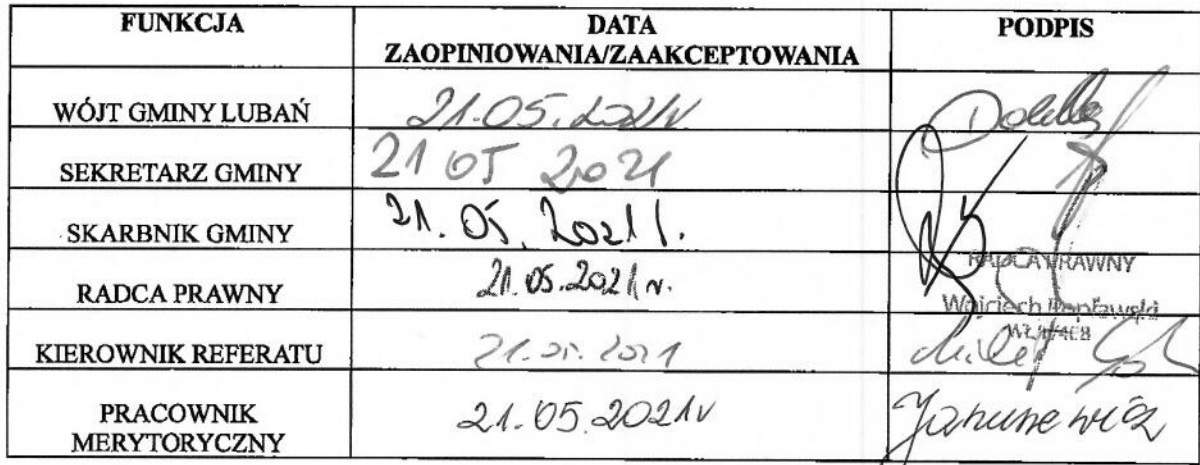 FUNKCJA
DATA
ZAOPINIOWANIA/ZAAKCEPTOWANIA
PODPIS
WÓJT GMINY LUBAŃ
21.05.2021r
SEKRETARZ GMINY
21 05 2021
SKARBNIK GMINY
21. 05. 2021 r.
RADCA PRAWNY
21.05.2021 r.
RADCA PRAWNY
Wojciech
KIEROWNIK REFERATU
21.05.2021
PRACOWNIK
MERYTORYCZNY
21.05.2021r